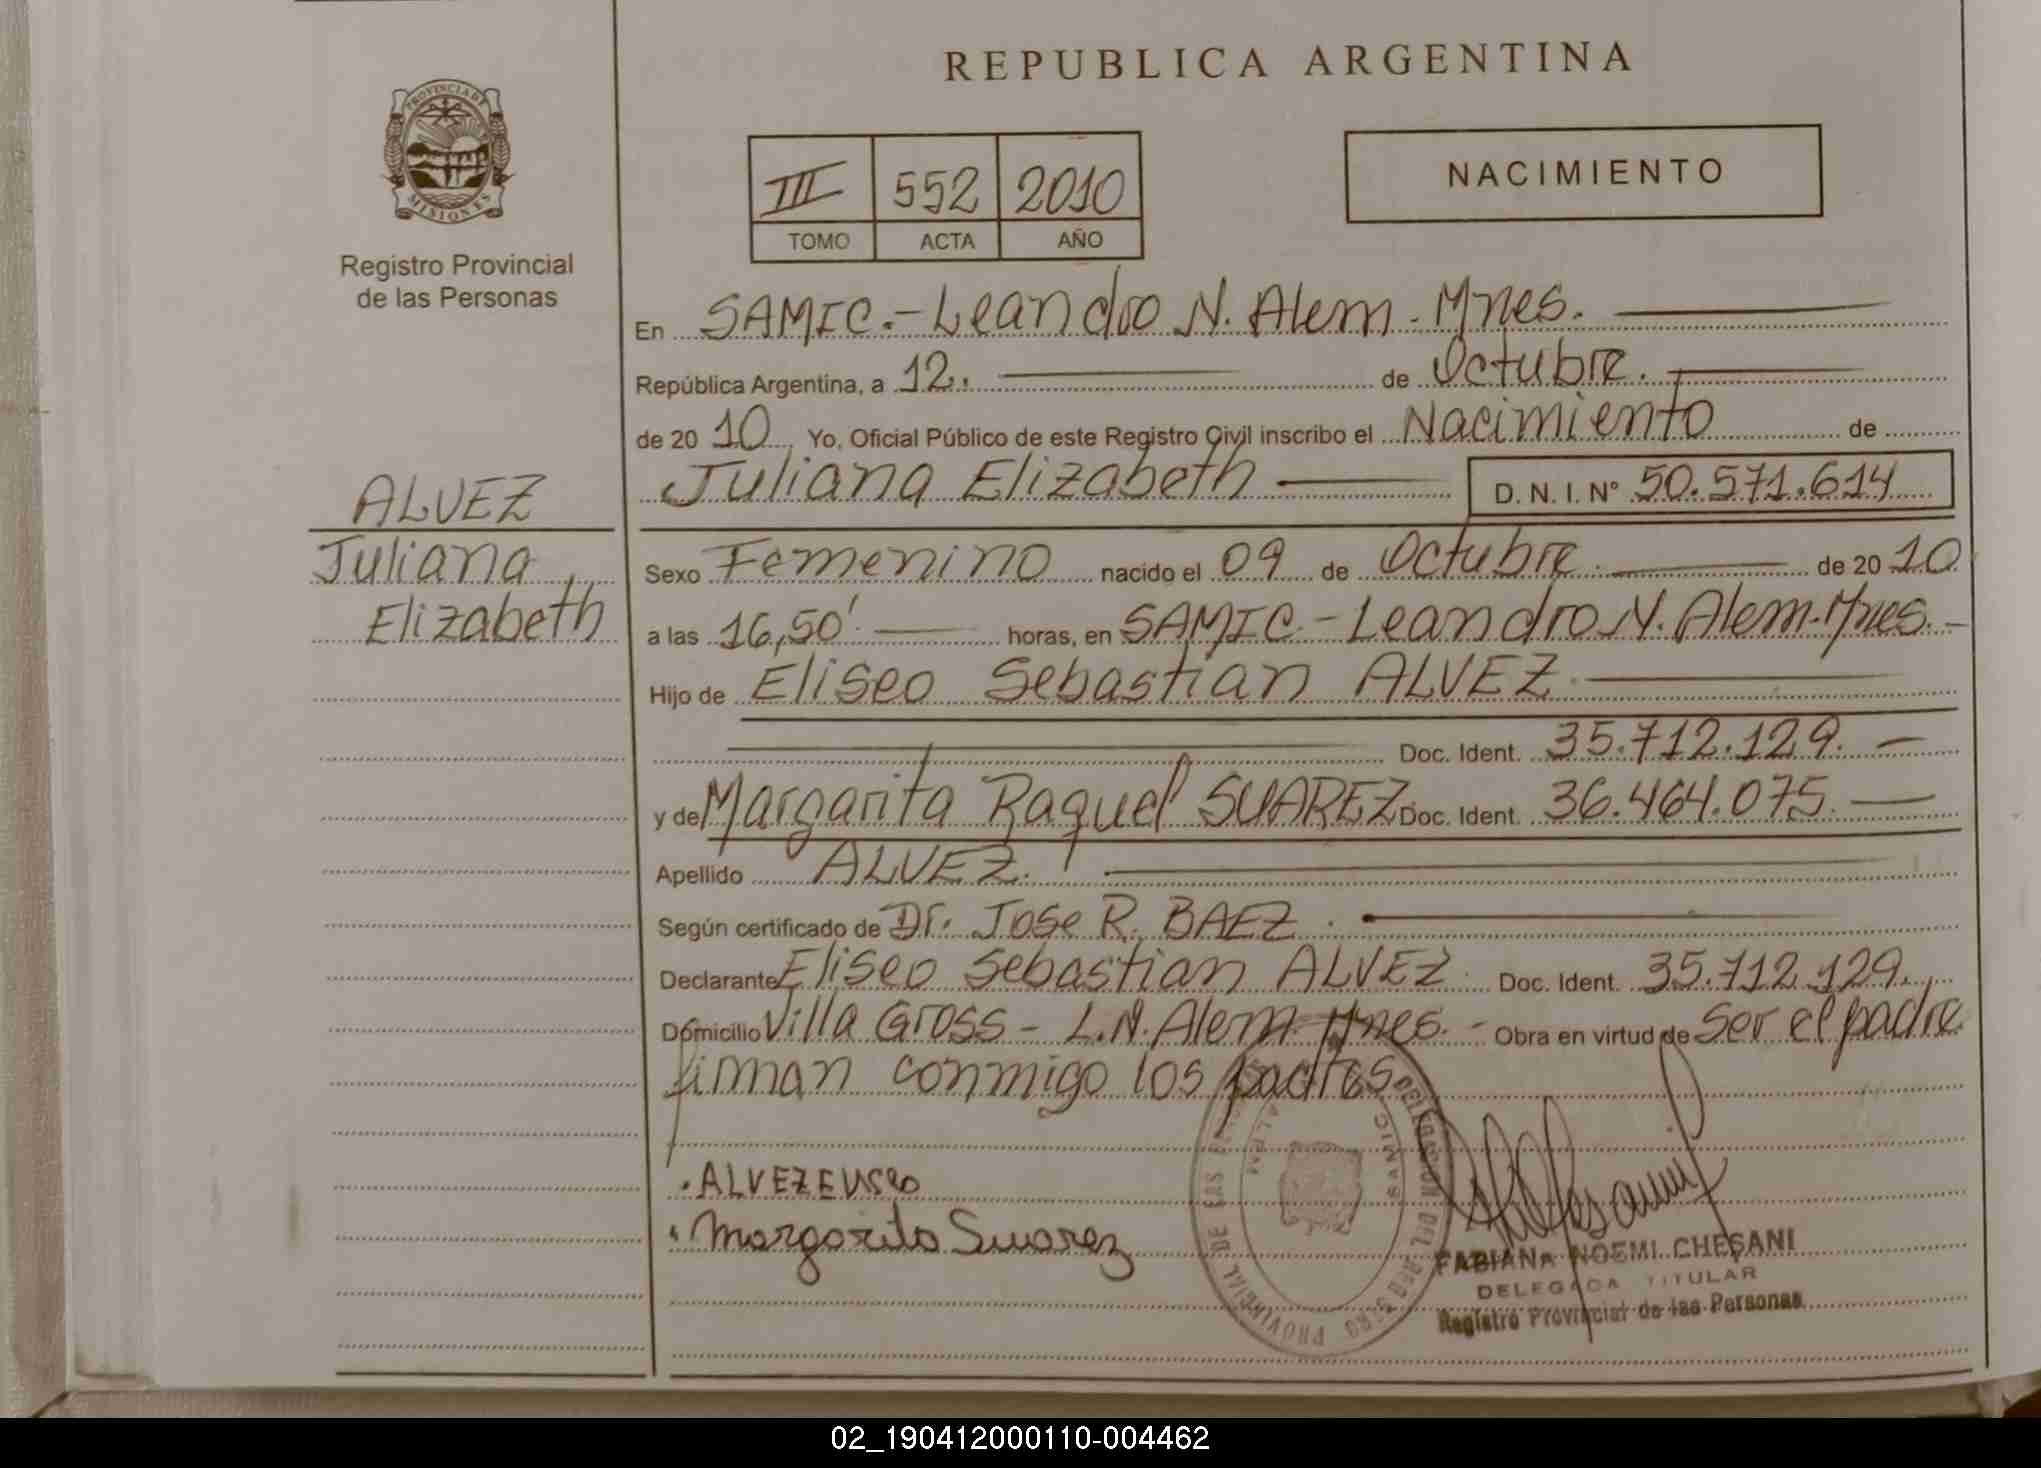 REPUBLICA ARGENTINA
PROVINCIA DE
MISIONES
Registro Provincial
de las Personas
III 552 2010
TOMO ACTA AÑO
NACIMIENTO
En SAMIC.-Leandro N. Alem - Mnes.
República Argentina, a 12. de Octubre.
de 20 10 Yo, Oficial Público de este Registro Civil inscribo el Nacimiento de
Juliana Elizabeth D. N. I. N° 50.571.614
ALVEZ
Juliana
Elizabeth
Sexo Femenino nacido el 09 de Octubre de 20 10
a las 16,50' horas, en SAMIC.-Leandro N. Alem.Mnes.-
Hijo de Eliseo Sebastian ALVEZ
Doc. Ident. 35.712.129.
y de Margarita Raquel SUAREZ Doc. Ident. 36.464.075.
Apellido ALVEZ.
Según certificado de Dr. Jose R. BAEZ.
Declarante Eliseo Sebastian ALVEZ Doc. Ident. 35.712.129.
Domicilio Villa Gross - L.N.Alem-Mnes.- Obra en virtud de Ser el padre
firman conmigo los padres
. ALVEZ ELISEO
. Margarita Suarez
FABIANA NOEMI CHESANI
DELEGADA TITULAR
Registro Provincial de las Personas
02_190412000110-004462